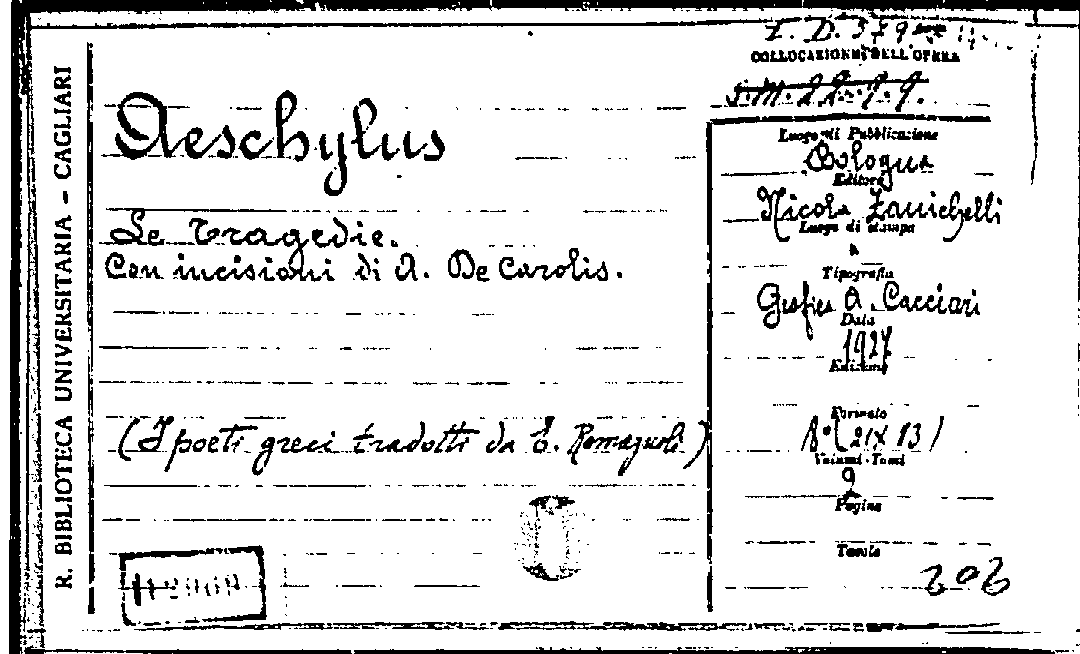 R. BIBLIOTECA UNIVERSITARIA – CAGLIARI
L. D. 379
COLLOCAZIONE DELL'OPERA
Aeschylus
Le Tragedie.
Con incisioni di A. De Carolis.
(I poeti greci tradotti da E. Romagnoli)
Luogo di Pubblicazione
Bologna
Editore
Nicola Zanichelli
Luogo di stampa
Tipografia
Grafica A. Cacciari
Data
1927
Edizione
Formato
8° (21X13)
Volumi-Tomi
2
Pagine
Tavole
202